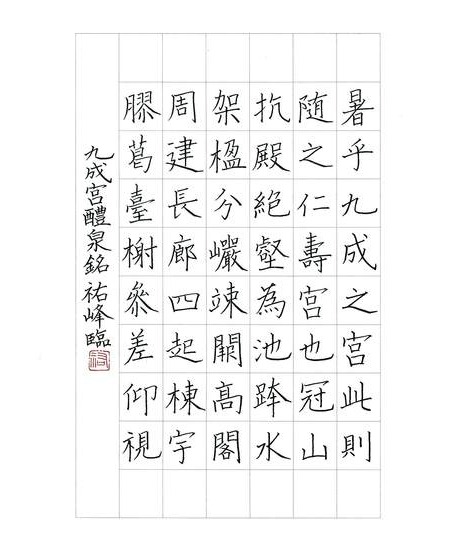 暑乎九成之宮此則
随之仁壽宮也冠山
抗殿絕壑為池跨水
架楹分巖竦闕高閣
周建長廊四起棟宇
膠葛臺榭參差仰視
九成宮醴泉銘 祐峰臨